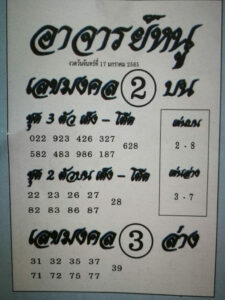 อาจารย์หนู
งวดวันจันทร์ที่ 17 มกราคม 2565
เลขมงคล 2 บน
ชุด 3 ตัว เต็ง - โต๊ด
022 923 426 327
582 483 986 187
628
เด่นบน
2 - 8
ชุด 2 ตัวบน เต็ง - โต๊ด
22 23 26 27
82 83 86 87
28
เด่นล่าง
3 - 7
เลขมงคล 3 ล่าง
31 32 35 37
71 72 75 77
39